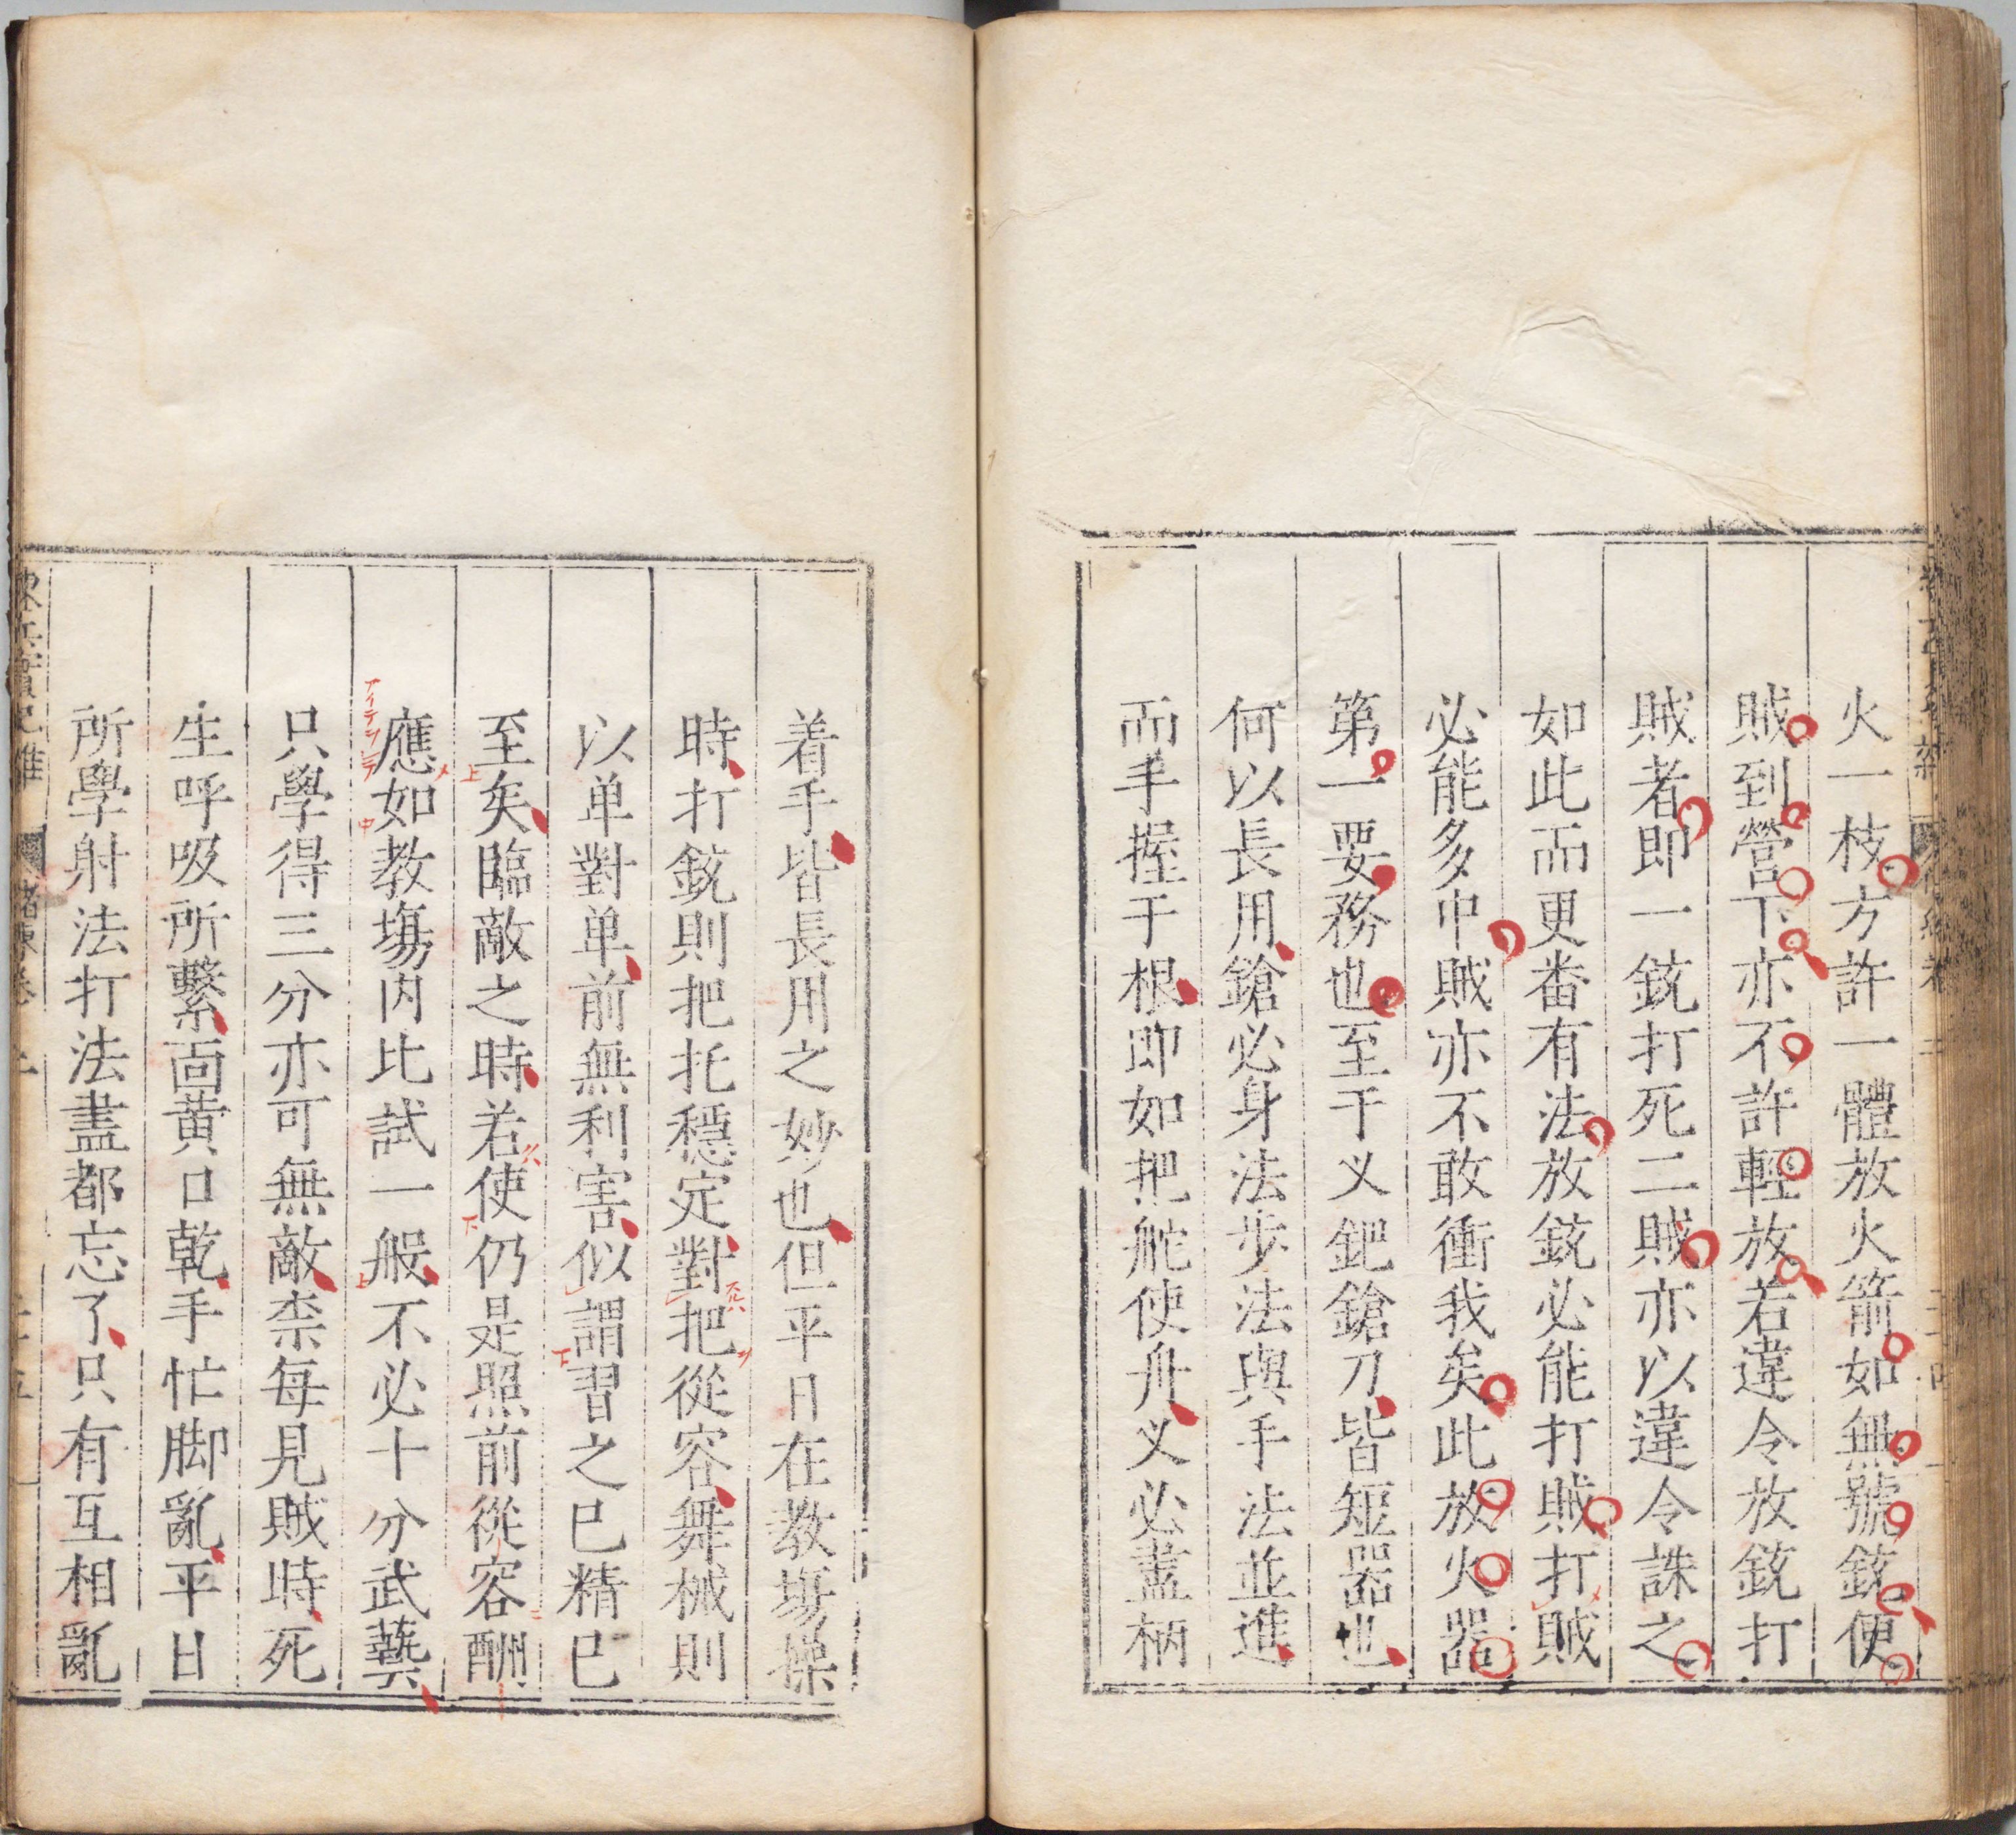 火一枝方許一體放火箭如無號銃便
賊到營下亦不許輕放若違令放銃打
賊者即一銃打死二賊亦以違令誅之
如此而更番有法放銃必能打賊打賊
必能多中賊亦不敢衝我矣此放火器
第一要務也至于义鈀鎗刀皆短器也
何以長用鎗必身法步法與手法並進
而手握于根即如把舵使舟义必盡柄
着手皆長用之妙也但平日在教塲操
時打銃則把托穩定對把從容舞械則
以单對单前無利害似謂習之已精已
至矣臨敵之時若使仍是照前從容酬
應如教塲内比試一般不必十分武藝
只學得三分亦可無敵柰每見賊時死
生呼吸所繫面黄口乾手忙脚亂平日
所學射法打法盡都忘了只有互相亂